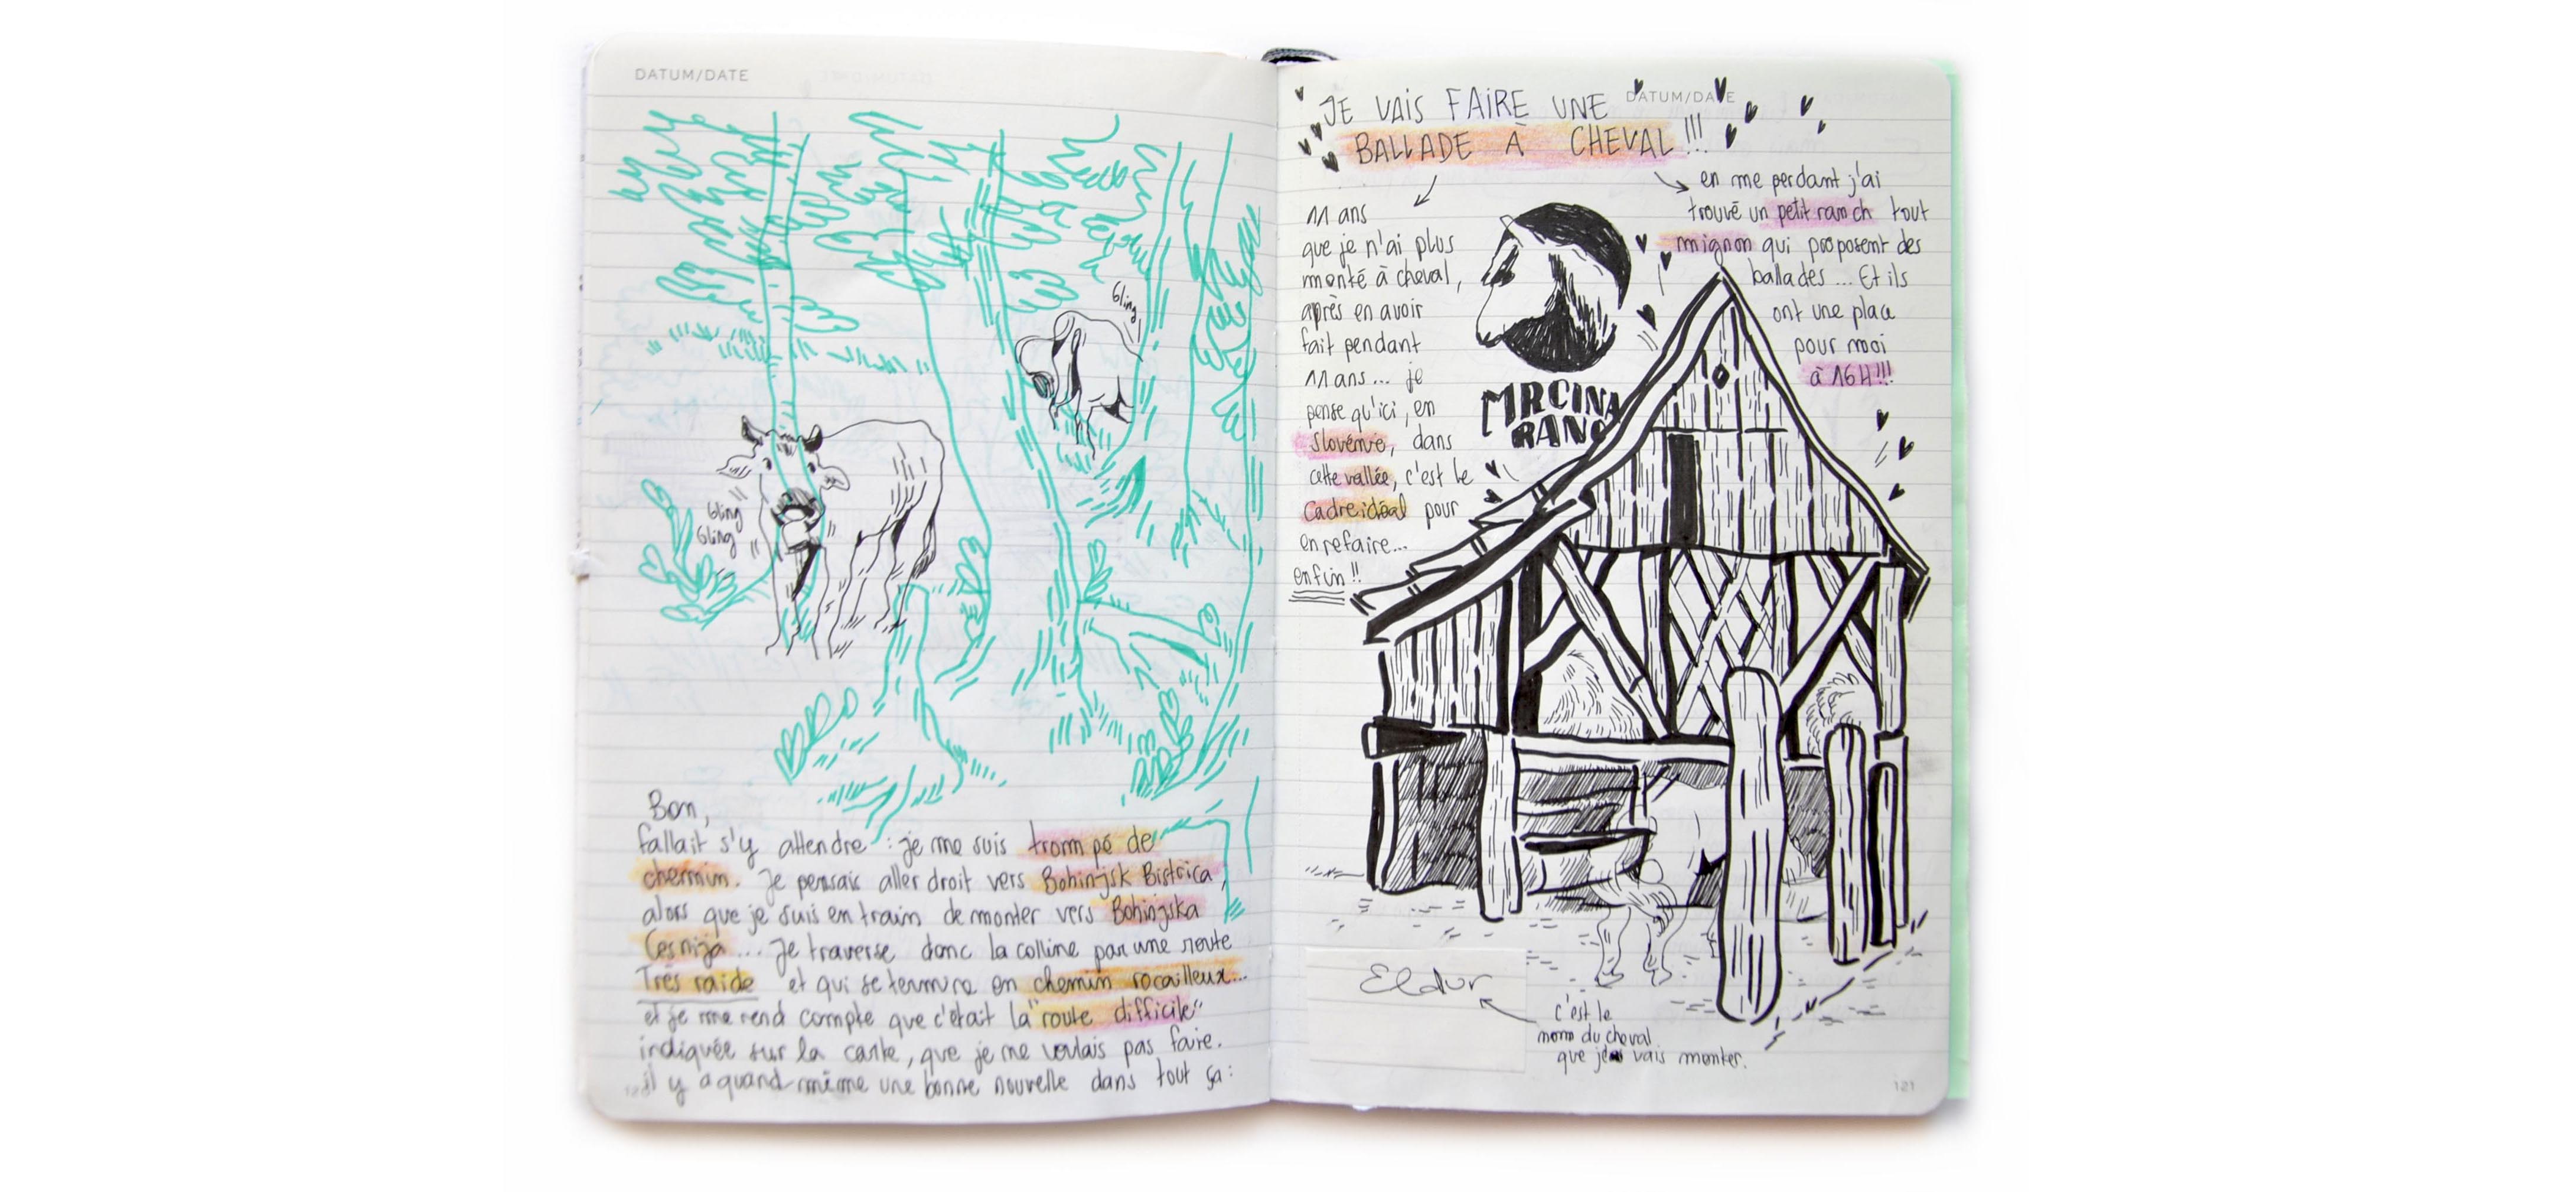 DATUM/DATE
gling
gling
gling
Bon,
fallait s'y attendre : je me suis trompé de
chemin. Je pensais aller droit vers Bohinjsk Bistrica,
alors que je suis en train de monter vers Bohinjska
Cesnija... Je traverse donc la colline par une route
Très raide et qui se termine en chemin rocailleux...
et je me rend compte que c'était la "route difficile"
indiquée sur la carte, que je ne voulais pas faire.
il y a quand même une bonne nouvelle dans tout ça :
DATUM/DATE
JE VAIS FAIRE UNE
BALLADE À CHEVAL !!!
11 ans
que je n'ai plus
monté à cheval,
après en avoir
fait pendant
11 ans... je
pense qu'ici, en
Slovénie, dans
cette vallée, c'est le
Cadre idéal pour
en refaire...
enfin !!
en me perdant j'ai
trouvé un petit ranch tout
mignon qui proposent des
ballades... Et ils
ont une place
pour moi
à 16H !!!
MRCINA
RANC
Eldur
c'est le
nom du cheval
que je vais monter.
121